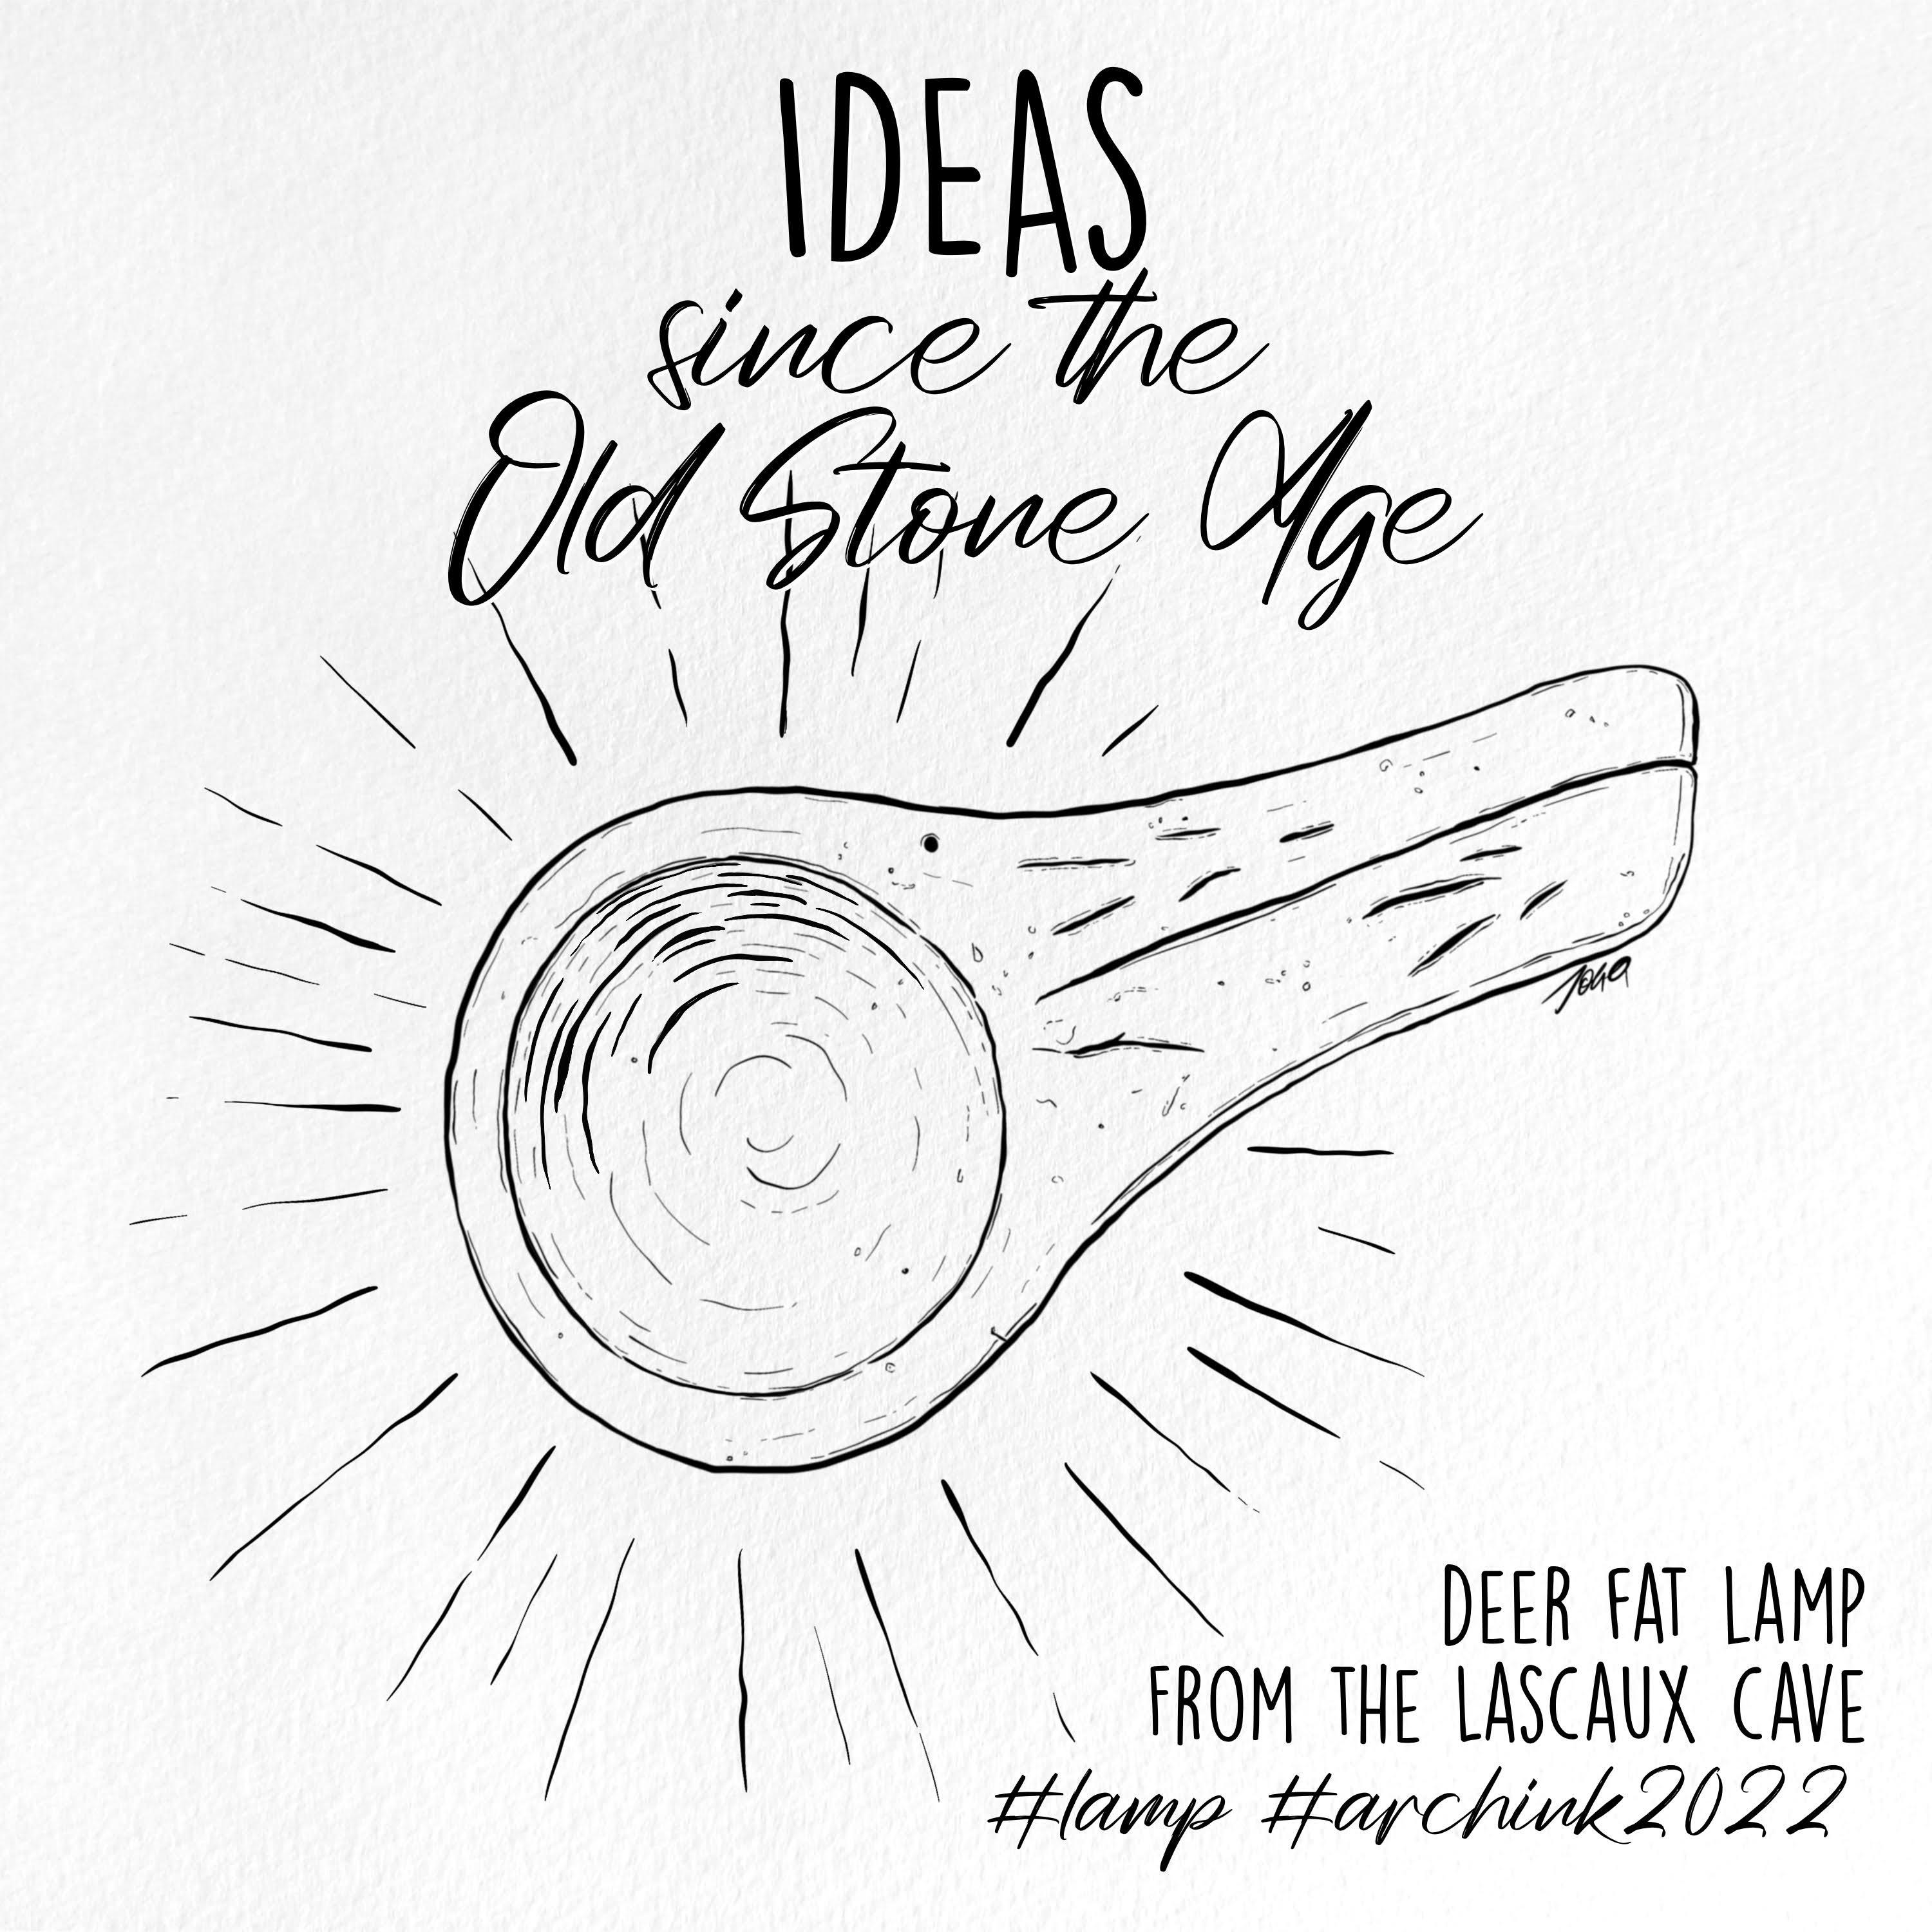 IDEAS
since the
Old Stone Age
DEER FAT LAMP
FROM THE LASCAUX CAVE
#lamp #archink2022